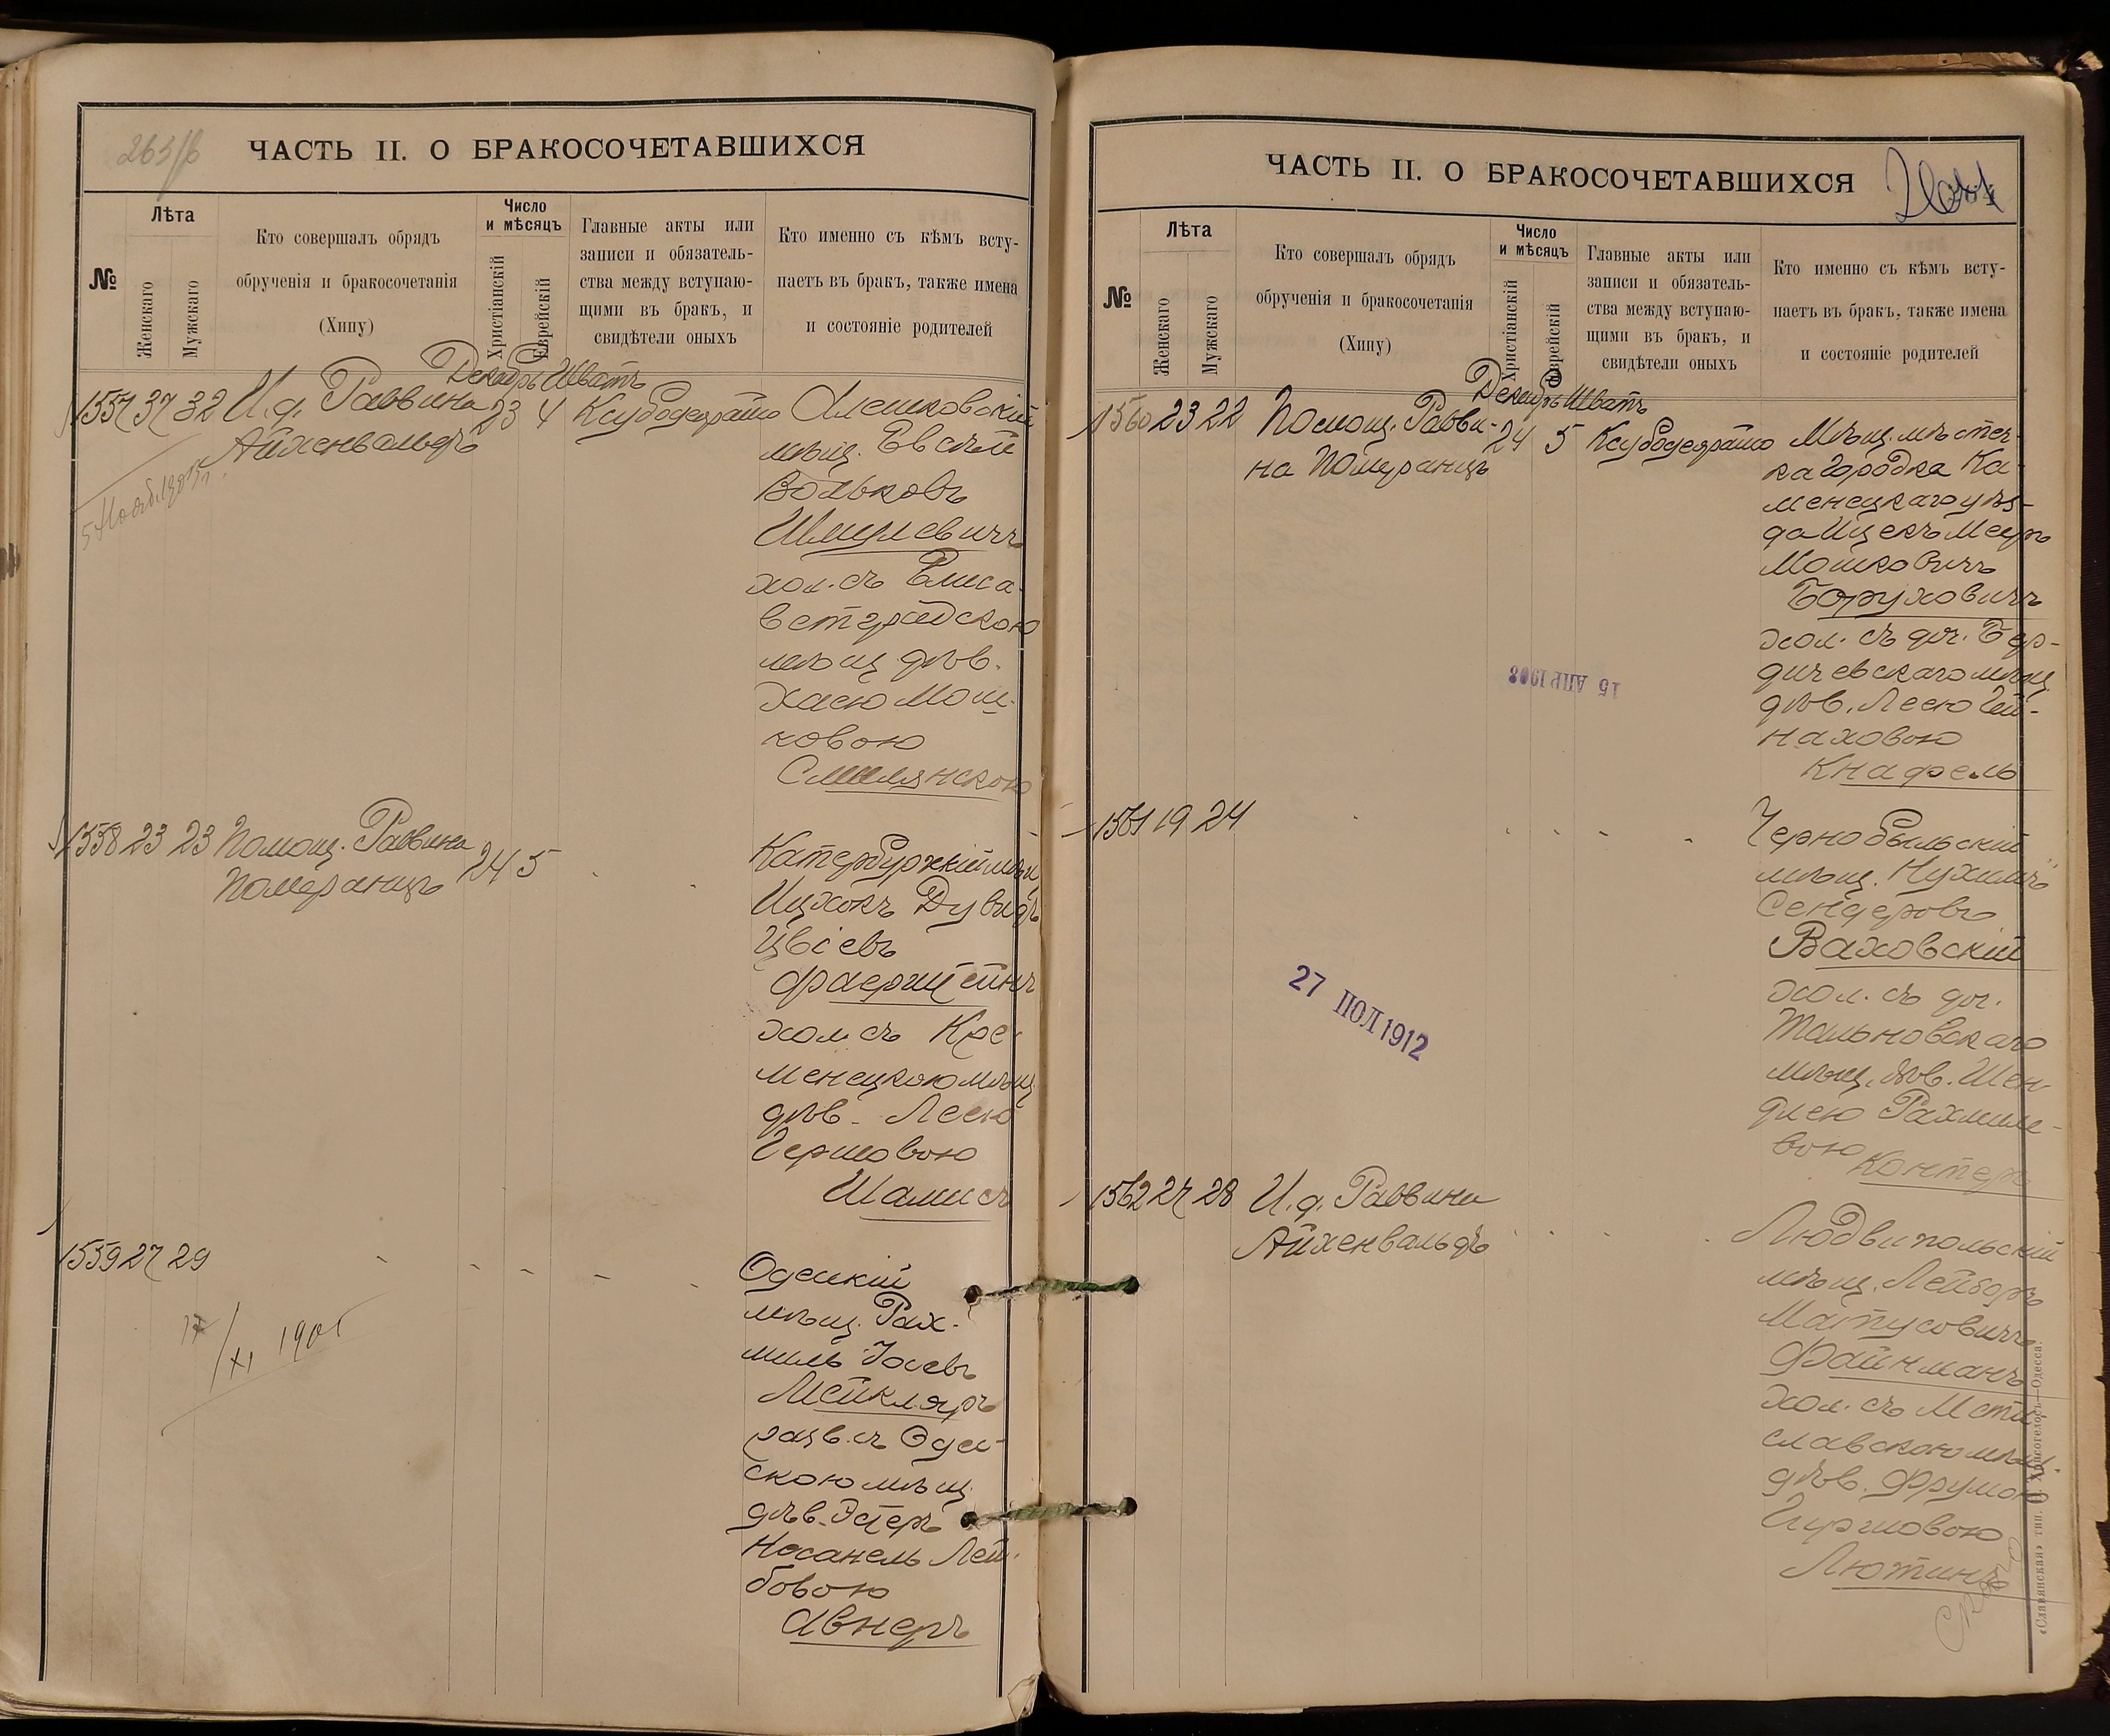 263/б
ЧАСТЬ II. О БРАКОСОЧЕТАВШИХСЯ
№
Лѣта
Женскаго
Мужскаго
Кто совершалъ обрядъ
обрученія и бракосочетанія
(Хипу)
Число
и мѣсяцъ
Христіанскій
Еврейскій
Главные акты или
записи и обязатель-
ства между вступаю-
щими въ бракъ, и
свидѣтели оныхъ
Кто именно съ кѣмъ всту-
паетъ въ бракъ, также имена
и состояніе родителей
Декабрь Шватъ
1557 37 32 И.д. Раввина 23 4 Ксубодераито
Айхенвальдъ
Алешковскій
мѣщ. Евсѣй
Вольковъ
Шмулевичъ
хол. съ Елиса-
ветградскою
мѣщ. дѣв.
Хаею Мош-
ковою
Смилянскою
1558 23 23 Помощ. Раввина 24 5
Померанцъ
Катербуржкій мѣщ
Ицхокъ Дувидъ
Цвіевъ
Фаерштейнъ
хол. съ Кре-
менецкою мѣщ
дѣв. Леею
Гершовою
Шамисъ
1559 27 29
17/XI 1905
Одесскій
мѣщ. Рах-
миль Іосевъ
Мейкляръ
разв. съ Одес-
скою мѣщ
дѣв. Эстеръ
Лей-
бовою
Авнеръ
ЧАСТЬ II. О БРАКОСОЧЕТАВШИХСЯ
№
Лѣта
Женскаго
Мужскаго
Кто совершалъ обрядъ
обрученія и бракосочетанія
(Хипу)
Число
и мѣсяцъ
Христіанскій
Еврейскій
Главные акты или
записи и обязатель-
ства между вступаю-
щими въ бракъ, и
свидѣтели оныхъ
Кто именно съ кѣмъ всту-
паетъ въ бракъ, также имена
и состояніе родителей
Декабрь Шватъ
1560 23 22 Помощ. Равви- 24 5 Ксубодераито
на Померанцъ
Мѣщ. мѣстеч-
ка Городка Ка-
менецкаго уѣз-
да Ицекъ Мееръ
Мошковичъ
Боруховичъ
хол. съ доч. Бер-
дичевскаго мѣщ.
дѣв. Леею Гей-
наховою
Кнафель
15 АПР 1908
1561 19 24
Чернобыльский
мѣщ. Нухимъ
Сендеровъ
Ваховскій
хол. съ доч.
Тальновскаго
мѣщ. дѣв. Шен-
длею Рахмиле-
вою
Контеръ
27 ПОЛ 1912
1562 27 28 И.д. Раввина
Айхенвальдъ
Людвипольскій
мѣщ. Лейзоръ
Матусовичъ
Файнманъ
хол. съ Мсти-
славскою мѣщ.
дѣв. Фрумою
Гиршовою
Лютинъ
«Славянская» тип. Н. Хрисогелосъ—Одесса.